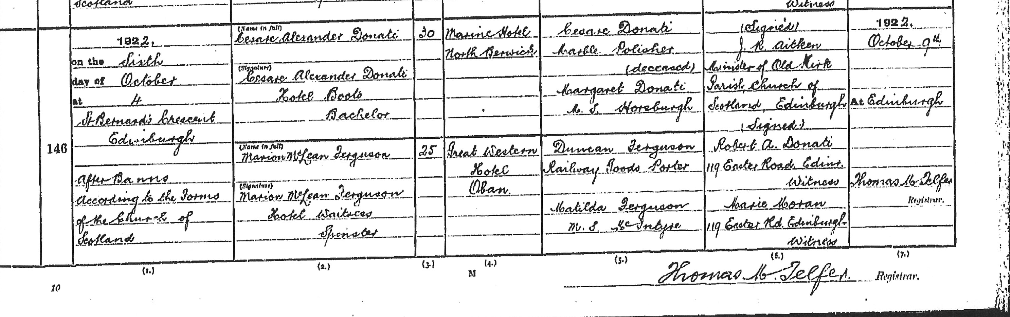 Scotland
Witness
146
1922,
on the Sixth
day of October
at 4
St Bernard's Crescent
Edinburgh
After Banns
According to the Forms
of the Church of
Scotland
(Name in full)
Cesare Alexander Donati
(Signature)
Cesare Alexander Donati
Hotel Boots
Bachelor
(Name in full)
Marion McLean Ferguson
(Signature)
Marion McLean Ferguson
Hotel Waitress
Spinster
30
25
Marine Hotel
North Berwick
Great Western
Hotel
Oban.
Cesare Donati
Marble Polisher
(deceased)
Margaret Donati
M.S. Horsburgh
Duncan Ferguson
Railway Goods Porter
Matilda Ferguson
M.S. McIntyre
(Signed)
J. R. Aitken
Minister of Old Kirk
Parish Church of
Scotland, Edinburgh
(Signed)
Robert A. Donati
119 Easter Road, Edinr.
Witness
Marie Moran
119 Easter Rd, Edinburgh.
Witness
1922.
October 9th
at Edinburgh
Thomas M. Telfer
Registrar.
(1.)
(2.)
(3.)
(4.)
(5.)
(6.)
(7.)
10
M
Thomas M. Telfer. Registrar.